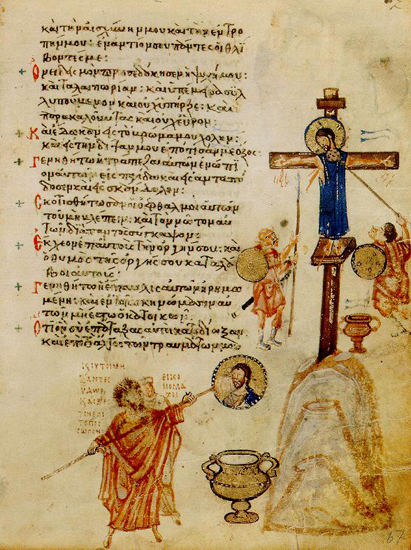 καὶ τὴν αἰσχύνην μου καὶ τὴν ἐντρο
πήν μου: ἐναντίον σου πάντες οἱ θλί
βοντές με:
Ὀνειδισμὸν προσεδόκησεν ἡ ψυχή μου
καὶ ταλαιπωρίαν: καὶ ὑπέμεινα συλ
λυπούμενον καὶ οὐχ ὑπῆρξε: καὶ
παρακαλοῦντας καὶ οὐχ εὗρον:
Καὶ ἔδωκαν εἰς τὸ βρῶμά μου χολὴν
καὶ εἰς τὴν δίψαν μου ἐπότισάν με ὄξος
Γενηθήτω ἡ τράπεζα αὐτῶν ἐνώπι
ον αὐτῶν εἰς παγίδα καὶ εἰς ἀνταπό
δοσιν καὶ εἰς σκάνδαλον:
Σκοτισθήτωσαν οἱ ὀφθαλμοὶ αὐτῶν
τοῦ μὴ βλέπειν: καὶ τὸν νῶτον αὐ
τῶν διὰ παντὸς σύγκαμψον:
Ἔκχεον ἐπ' αὐτοὺς τὴν ὀργήν σου: καὶ
ὁ θυμὸς τῆς ὀργῆς σου καταλά
βοι αὐτούς:
Γενηθήτω ἡ ἔπαυλις αὐτῶν ἠρημω
μένη: καὶ ἐν τοῖς σκηνώμασιν αὐ
τῶν μὴ ἔστω ὁ κατοικῶν:
Ὅτι ὃν σὺ ἐπάταξας αὐτοὶ κατεδίωξαν
καὶ ἐπὶ τὸ ἄλγος τῶν τραυμάτων μου
67